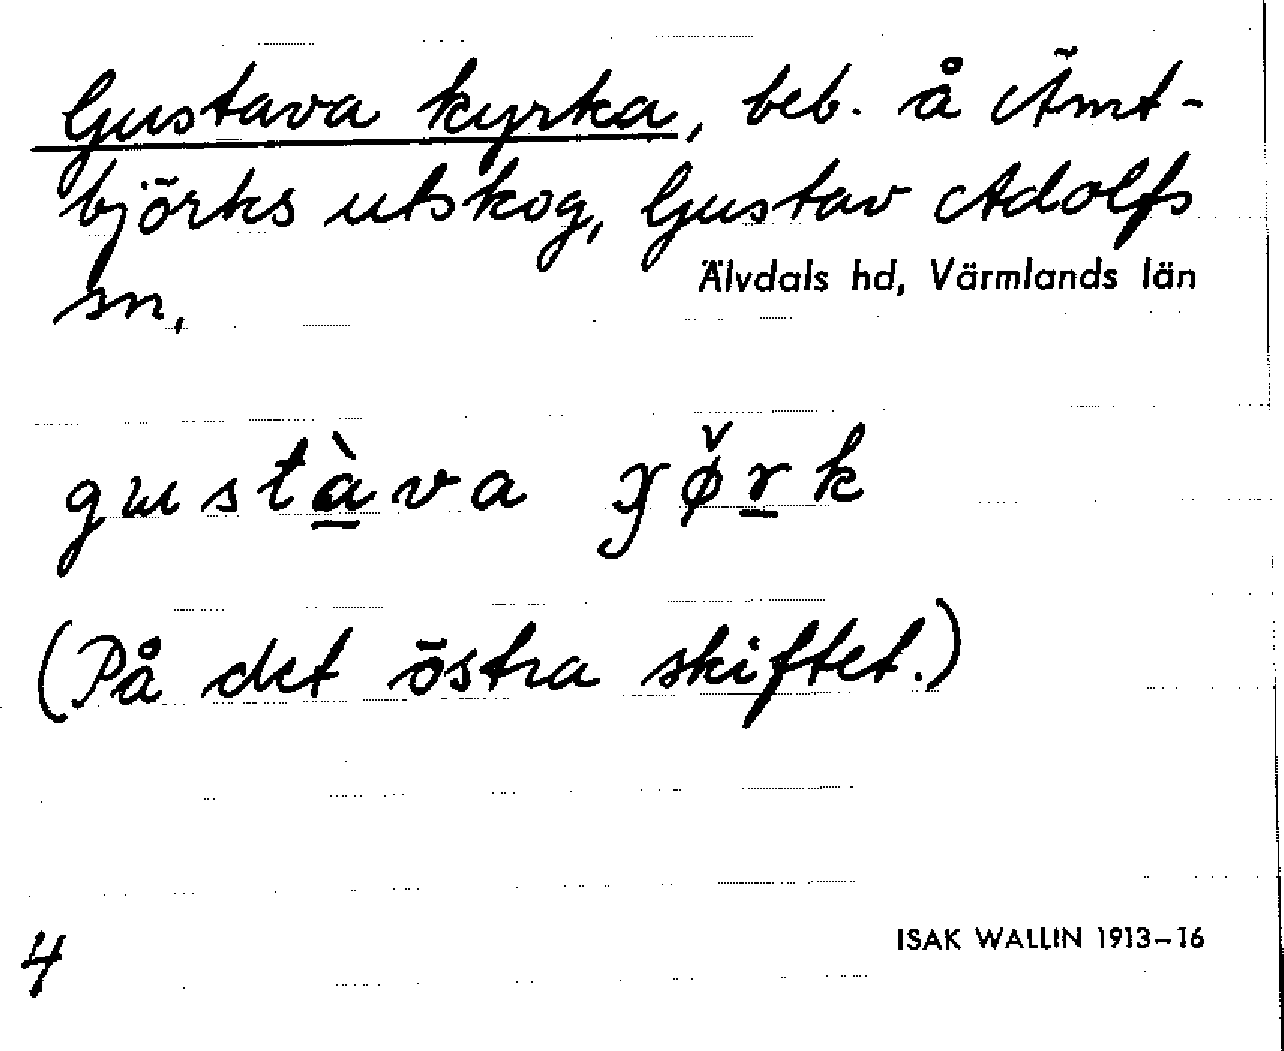 Gustava kyrka, beb. å Ämt-
björks utskog, Gustav Adolfs
Älvdals hd, Värmlands län
sn.
gustàva
(På det östra skiftet.)
4
ISAK WALLIN 1913–16